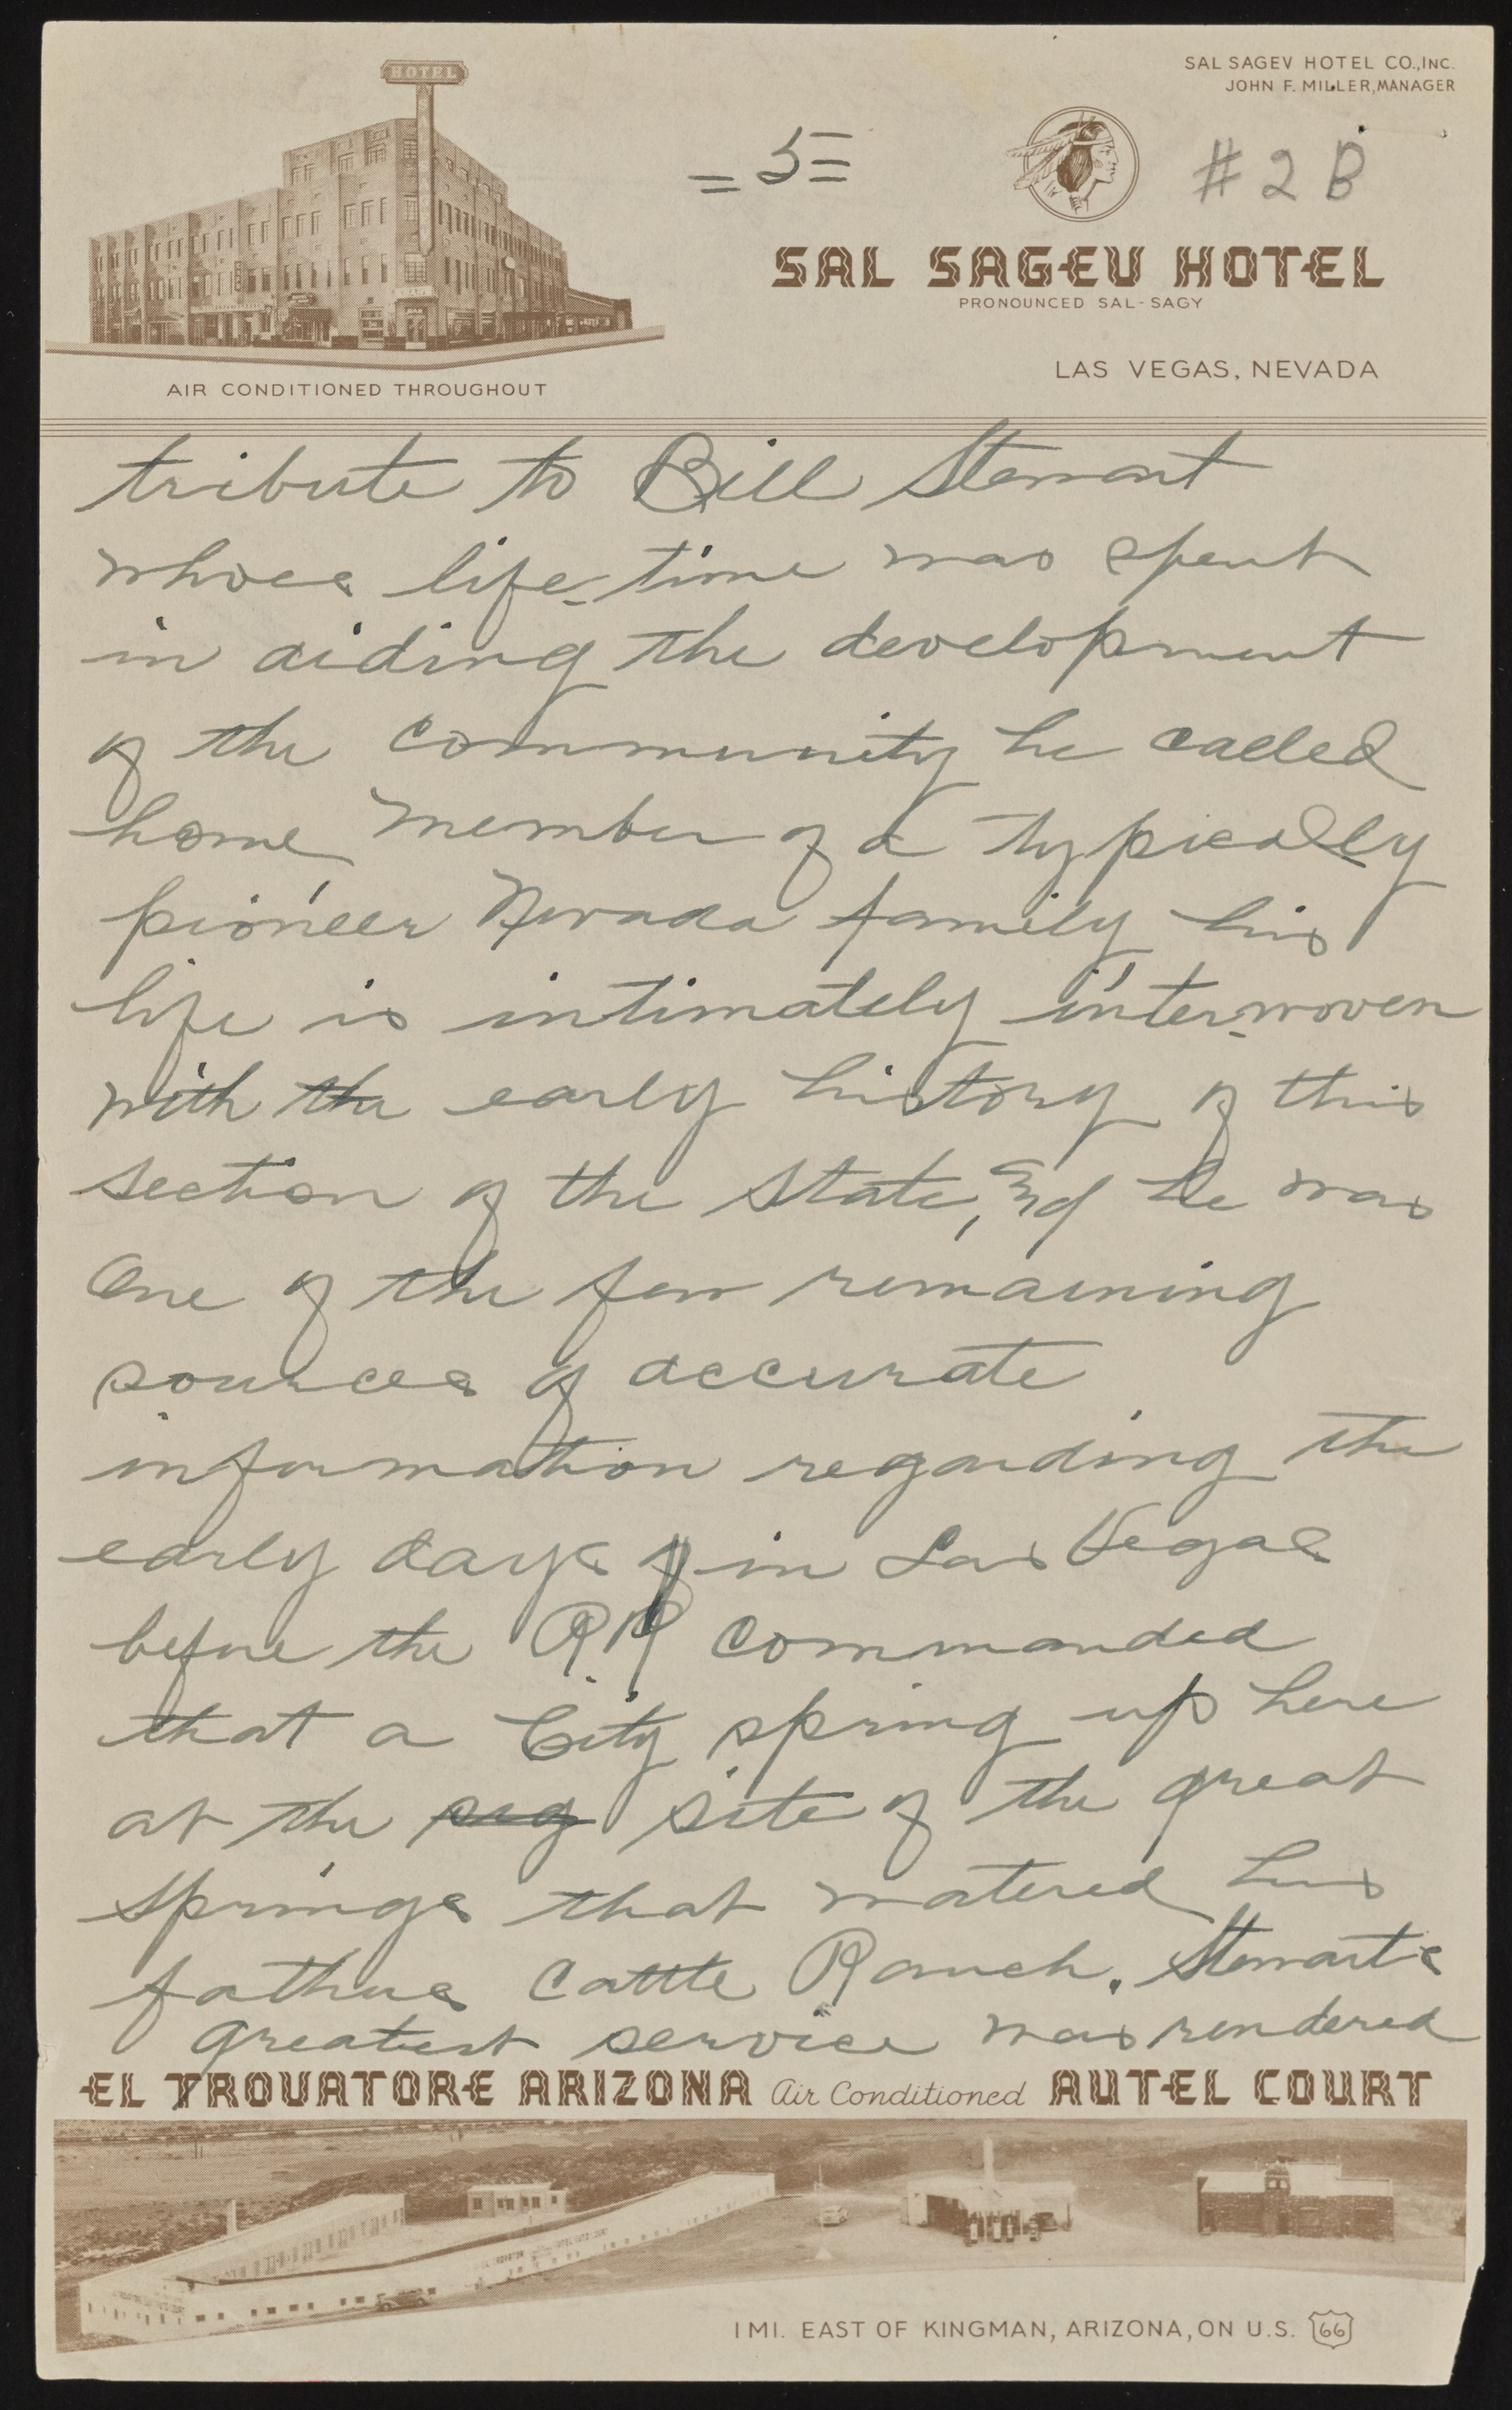 HOTEL
SAL SAGEV HOTEL CO., INC.
JOHN F. MILLER, MANAGER
= 5 =
#2B
SAL SAGEV HOTEL
PRONOUNCED SAL-SAGY
LAS VEGAS, NEVADA
AIR CONDITIONED THROUGHOUT
tribute to Bill Stewart
whose life-time was spent
in aiding the development
of the community he called
home member of a typically
pioneer Nevada family his
life is intimately inter-woven
with the early history of this
section of the State, & he was
One of the few remaining
sources of accurate
information regarding the
early days in Las Vegas
before the RR commanded
that a City spring up here
at the site of the great
springs that watered his
fathers Cattle Ranch. Stewarts
greatest service was rendered
EL TROVATORE ARIZONA Air Conditioned AUTEL COURT
1 MI. EAST OF KINGMAN, ARIZONA, ON U.S. 66